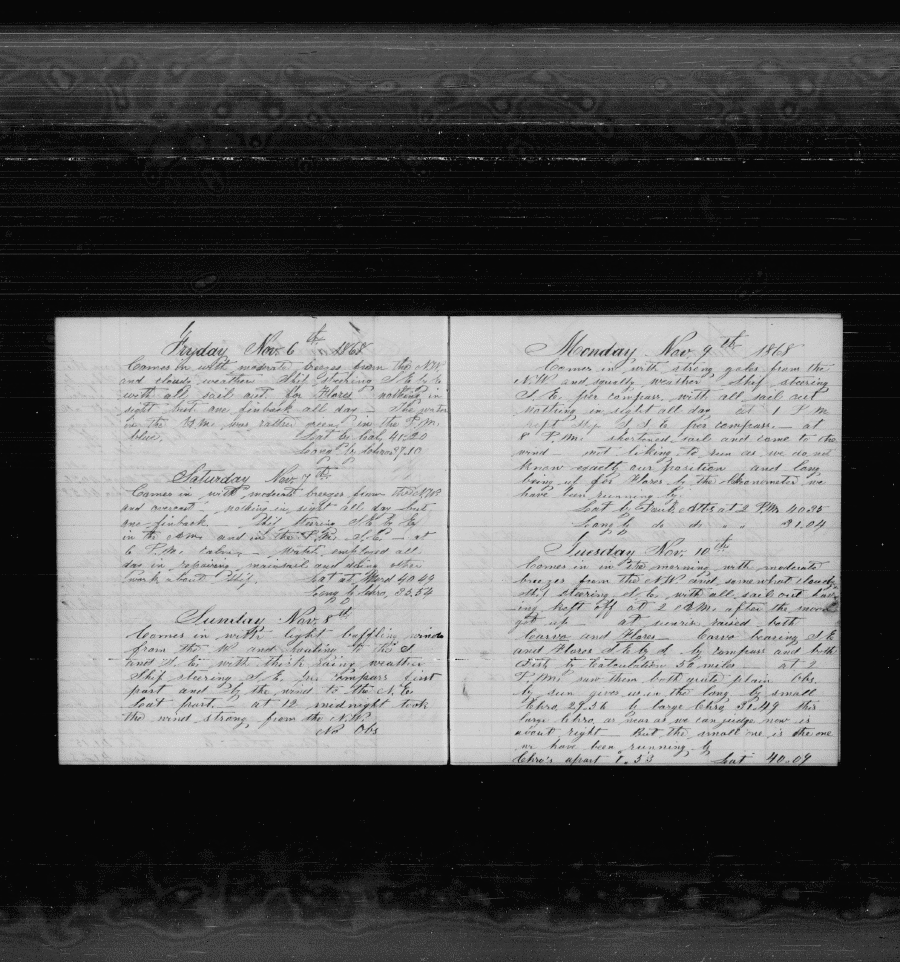 Fryday Nov. 6th 1868
Comes in with moderate breezes from the NW
and cloudy weather Ship steering S.E. by E
with all sail out for Flores nothing in
sight but one finback all day — The water
in the A.M. was rather green in the P.M.
blue. Lat by 40.20
Long by Chro 37.10
Saturday Nov. 7th
Comes in with moderate breezes from the NW
and overcast, nothing in sight all day but
one finback — Ship steering S.E. by E
in the A.M. and in the P.M. S.E. — at
6 P.M. calm — Watch employed all
day in repairing mainsail and doing other
work about Ship. Lat at Merd 40.49
Long by Chro. 35.54
Sunday Nov. 8th
Comes in with light baffling winds
from the W and hauling to the S.
and S.E. with thick rainy weather
Ship steering S.E. per compass first
part and by the wind to the N.E.
last part. — at 12 midnight took
the wind strong from the N.W.
No Obs
Monday Nov. 9th 1868
Comes in with strong gales from the
N.W and squally weather Ship steering
S.E. per compass with all sail out
nothing in sight all day at 1 P.M.
kept Ship S.S.E. per compass. — at
8 P.M. shortened sail and came to the
wind not liking to run as we do not
know exactly our position and long
being up for Flores by the Chronometer we
have been running by.
Lat by Dank Alts at 2 P.M. 40.35
Long by do do " " 31.04
Tuesday Nov. 10th
Comes in in the morning with moderate
breezes from the N.W and somewhat cloudy
Ship steering S.E. with all sail out hav
ing kept off at 2 A.M. after the moon
got up — at sunrise raised both
Corvo and Flores — Corvo bearing S.E.
and Flores S.E. by S. by compass and both
dist by Calculation 56 miles — at 2
P.M. saw them both quite plain Obs.
by sun gives us in the long by small
Chro. 29.56 by large Chro 31.49 this
large Chro. as near as we can judge now is
about right — but the small one is the one
we have been running by
Chro's apart 1.53 Lat 40.09